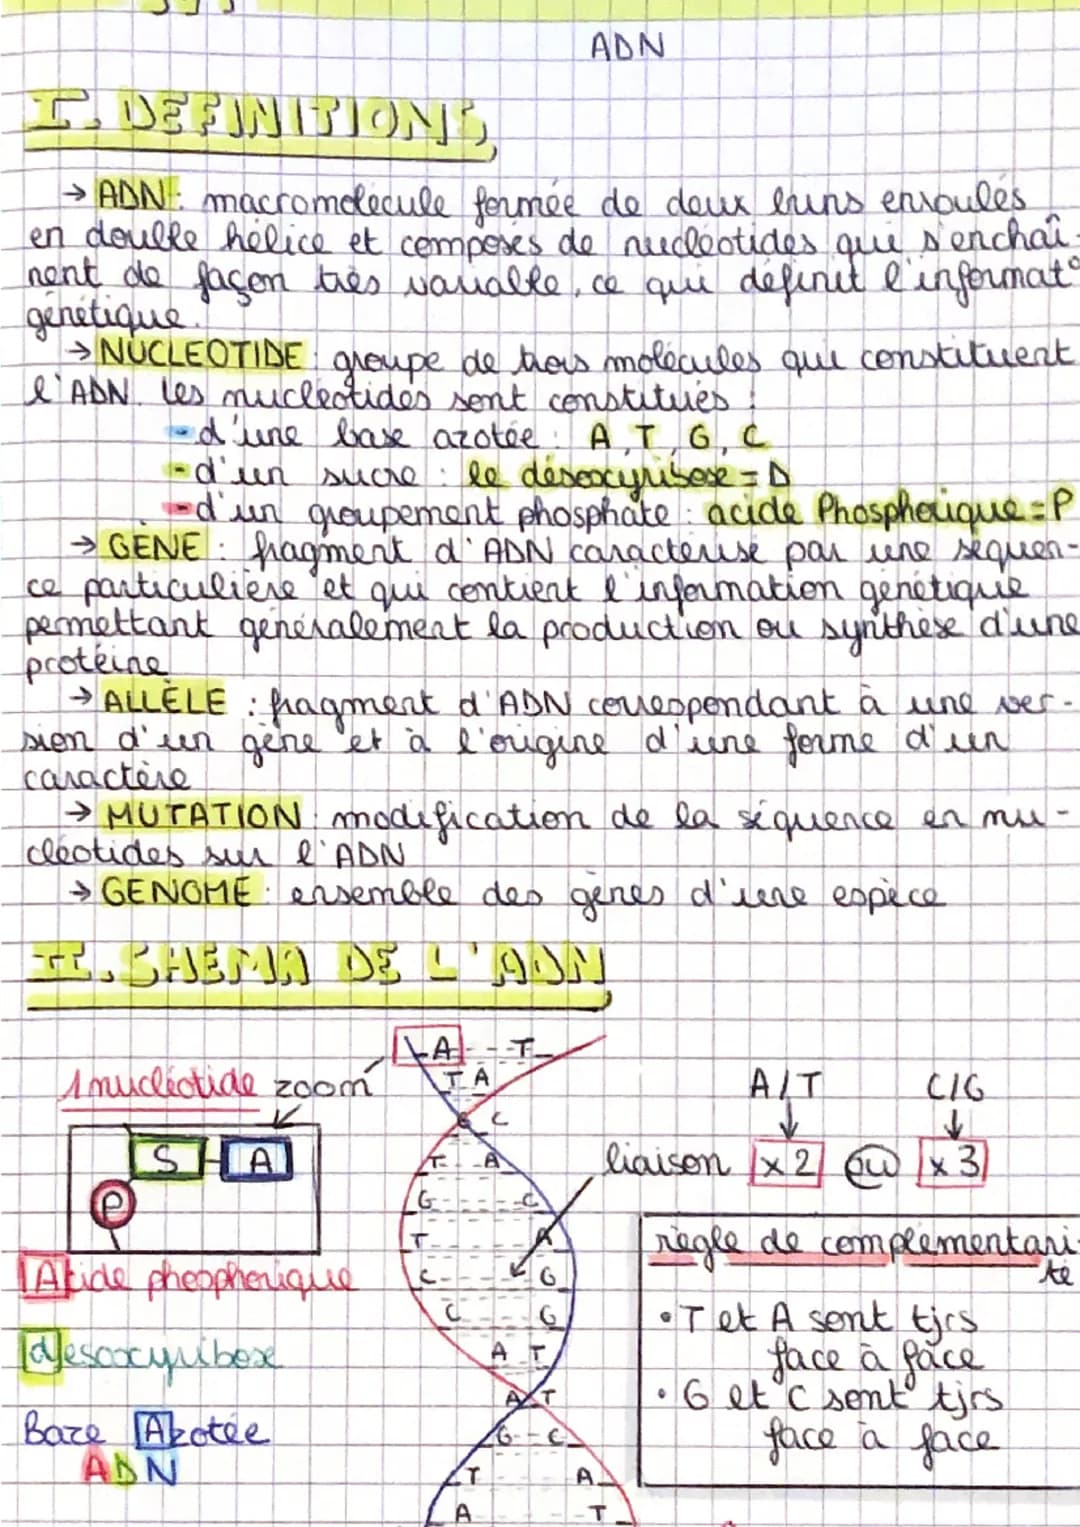 ADN
I. DEFINITIONS
→ ADN : macromolécule formée de deux bruns enroulés
en double hélice et composés de nucléotides qui s'enchaî-
nent de façon très variable, ce qui définit l'informat°
génétique.
→ NUCLEOTIDE : groupe de trois molécules qui constituent
l'ADN. les nucléotides sont constitués :
- d'une base azotée : A, T, G, C
- d'un sucre : le désoxyribose = D
- d'un groupement phosphate : acide Phosphorique = P
→ GENE : fragment d'ADN caractérisé par une séquen-
ce particulière et qui contient l'information génétique
permettant généralement la production ou synthèse d'une
protéine
→ ALLÈLE : fragment d'ADN correspondant à une ver-
sion d'un gène et à l'origine d'une forme d'un
caractère
→ MUTATION : modification de la séquence en nu-
cléotides sur l'ADN
→ GENOME : ensemble des gènes d'une espèce
II. SHEMA DE L'ADN
1 nucléotide zoom
S A
P
Acide phosphorique
desoxyribose
Base Azotée
ADN
A T
T A
G C
T A
G C
T A
C G
C G
A T
A T
G C
T A
A T
A/T C/G
liaison x2 ou x3
règle de complémentari-
té
• T et A sont tjrs
face à face
• G et C sont tjrs
face à face